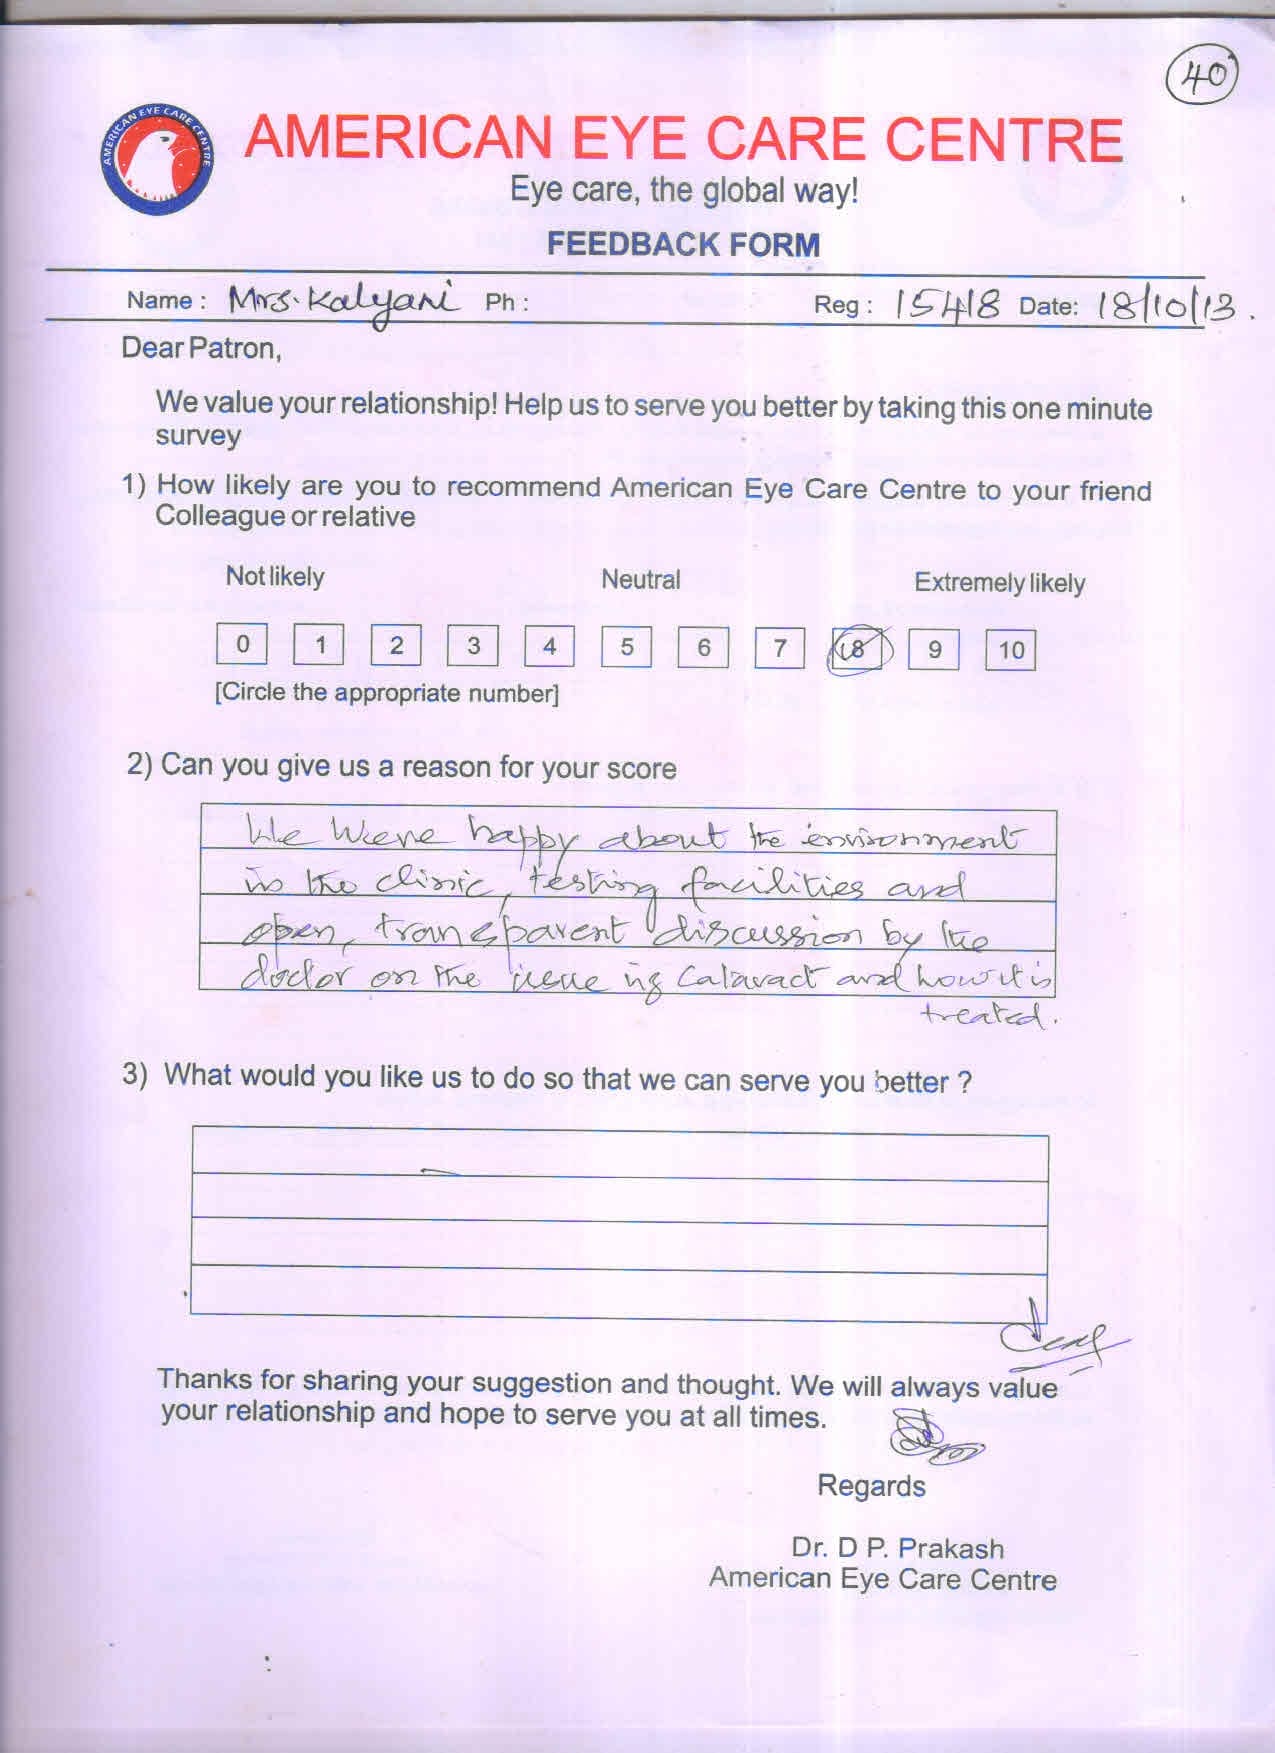 40
AMERICAN EYE CARE CENTRE
AMERICAN EYE CARE CENTRE
Eye care, the global way!
FEEDBACK FORM
Name : Mrs. Kalyani Ph : Reg : 15418 Date: 18/10/13.
Dear Patron,
We value your relationship! Help us to serve you better by taking this one minute
survey
1) How likely are you to recommend American Eye Care Centre to your friend
Colleague or relative
Not likely Neutral Extremely likely
0 1 2 3 4 5 6 7 8 9 10
[Circle the appropriate number]
2) Can you give us a reason for your score
We were happy about the environment
in the clinic, testing facilities and
open, transparent discussion by the
doctor on the issue Cataract and how it is
treated.
3) What would you like us to do so that we can serve you better ?
Thanks for sharing your suggestion and thought. We will always value
your relationship and hope to serve you at all times.
Regards
Dr. D P. Prakash
American Eye Care Centre